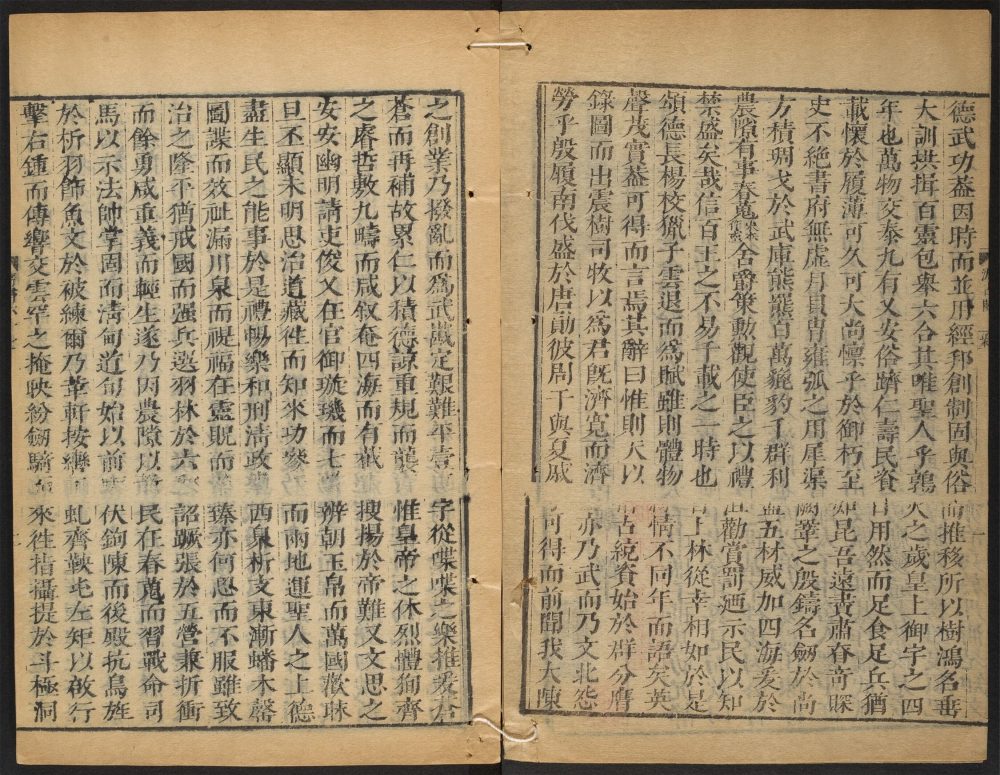 德武功葢因時而並用經邦創制固與俗而推移所以樹鴻名垂
大訓拱揖百靈包舉六合其唯聖人乎鶉火之歲皇上御宇之四
年也萬物交泰九有乂安俗躋仁壽民資日用然而足食足兵猶
載懷於履薄可久可大尚懍乎於御朽至如昆吾遠贐肅昚奇賝
史不絶書府無虛月貝冑雍弧之用犀渠闕鞏之殷鑄名劒於尚
方積琱戈於武庫熊羆百萬貔豹千群利盡五材威加四海爰於
農隙有事春蒐舍爵策勲觀使臣之以禮沮勸賞罰廼示民以知
禁盛矣哉信百王之不易千載之一時也昔上林從幸相如於是
頌德長楊校獵子雲退而爲賦雖則體物緣情不同年而語矣英
聲茂實葢可得而言焉其辭曰惟則天以稽古統資始於群分膺
錄圖而出震樹司牧以爲君旣濟寛而濟猛亦乃武而乃文北怨
勞乎殷履南伐盛於唐勛彼周干與夏戚可得而前聞我大陳
之創業乃撥亂而爲武戡定艱難平壹區宇從喋喋之樂推爰蒼
蒼而再補故累仁以積德諒重規而襲矩惟皇帝之休烈體狥齊
之睿哲敷九疇而咸敘奄四海而有截搜揚於帝難又文思之
安安幽明請吏俊乂在官御璇璣而七政辨朝玉帛而萬國歡昧
旦丕顯未明思治道藏往而知來功參天而兩地運聖人之上德
盡生民之能事於是禮暢樂和刑淸政肅西臬析支東漸蟠木罄
圖諜而效祉漏川泉而禔福在靈貺而必臻亦何思而不服雖致
治之隆平猶戒國而强兵選羽林於六郡詔蹶張於五營兼折衝
而餘勇咸重義而輕生遂乃因農隙以敎民在春蒐而習戰命司
馬以示法帥掌固而淸甸道旬始以前驅伏鉤陳而後殿抗鳥旌
於析羽飾魚文於被練爾乃革軒按轡玉虬齊鞅屯左矩以啟行
擊右鍾而傳響交雲罕之掩映紛劒騎而來徃指攝提於斗極洞